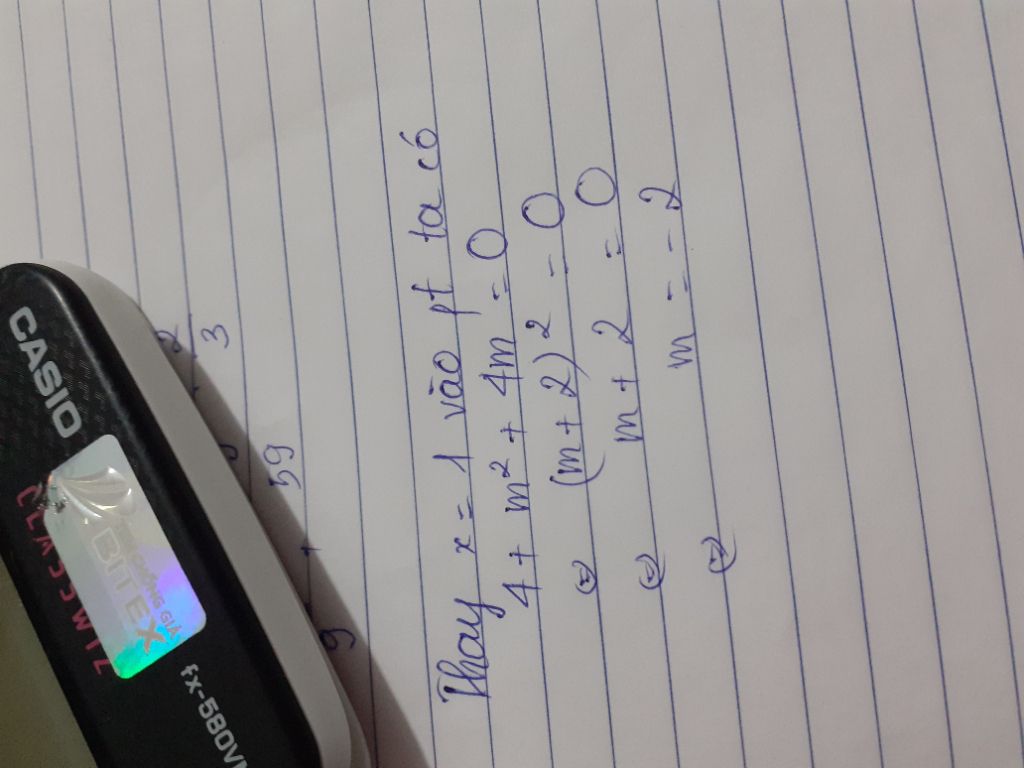 CASIO
CLASSWIZ
BITEX
CHỐNG GIẢ
fx-580VN
2
3
59
9
Thay x = 1 vào pt ta có
4 + m² + 4m = 0
⇔ (m + 2)² = 0
⇔ m + 2 = 0
⇔ m = -2